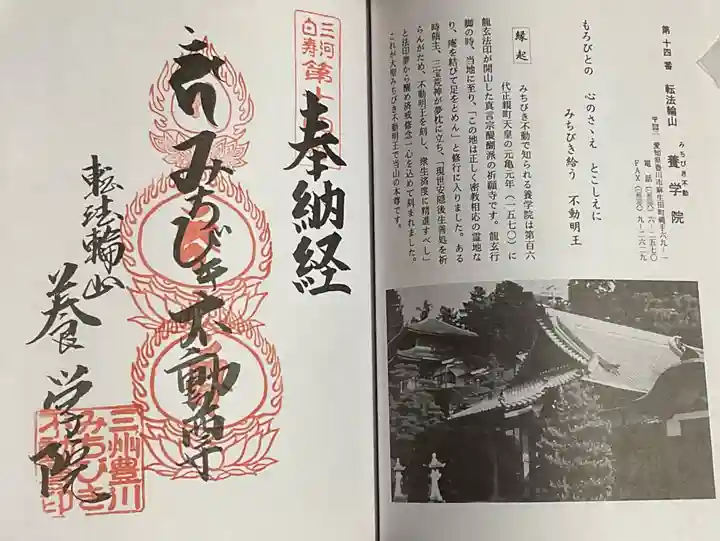 第十四番 転法輪山
みちびき不動
養学院
愛知県豊川市麻生田町縄手六九ー一
電話
六ー二五七〇
FAX
九ー二六二九
もろびとの 心のさゝえ とこしえに
みちびき給う 不動明王
縁起
みちびき不動で知られる養学院は第百六
代正親町天皇の元亀元年(一五七〇)に
龍玄法印が開山した真言宗醍醐派の祈願寺です。龍玄行
脚の時、当地に至り、「この地は正しく密教相応の霊地な
り、庵を結びて足をとめん」と修行に入りました。ある
時領主、三宝荒神が夢枕に立ち、「現世安穏後生善処を祈
らんがため、不動明王を刻し、衆生済度に精進すべし」
と法印夢から醒め済戒修念一心を込めて刻まれました。
これが大聖みちびき不動明王で当山の本尊です。
三河
白寿
第十
奉納経
みちびき不動尊
転法輪山
養学院
三州豊川
みちびき